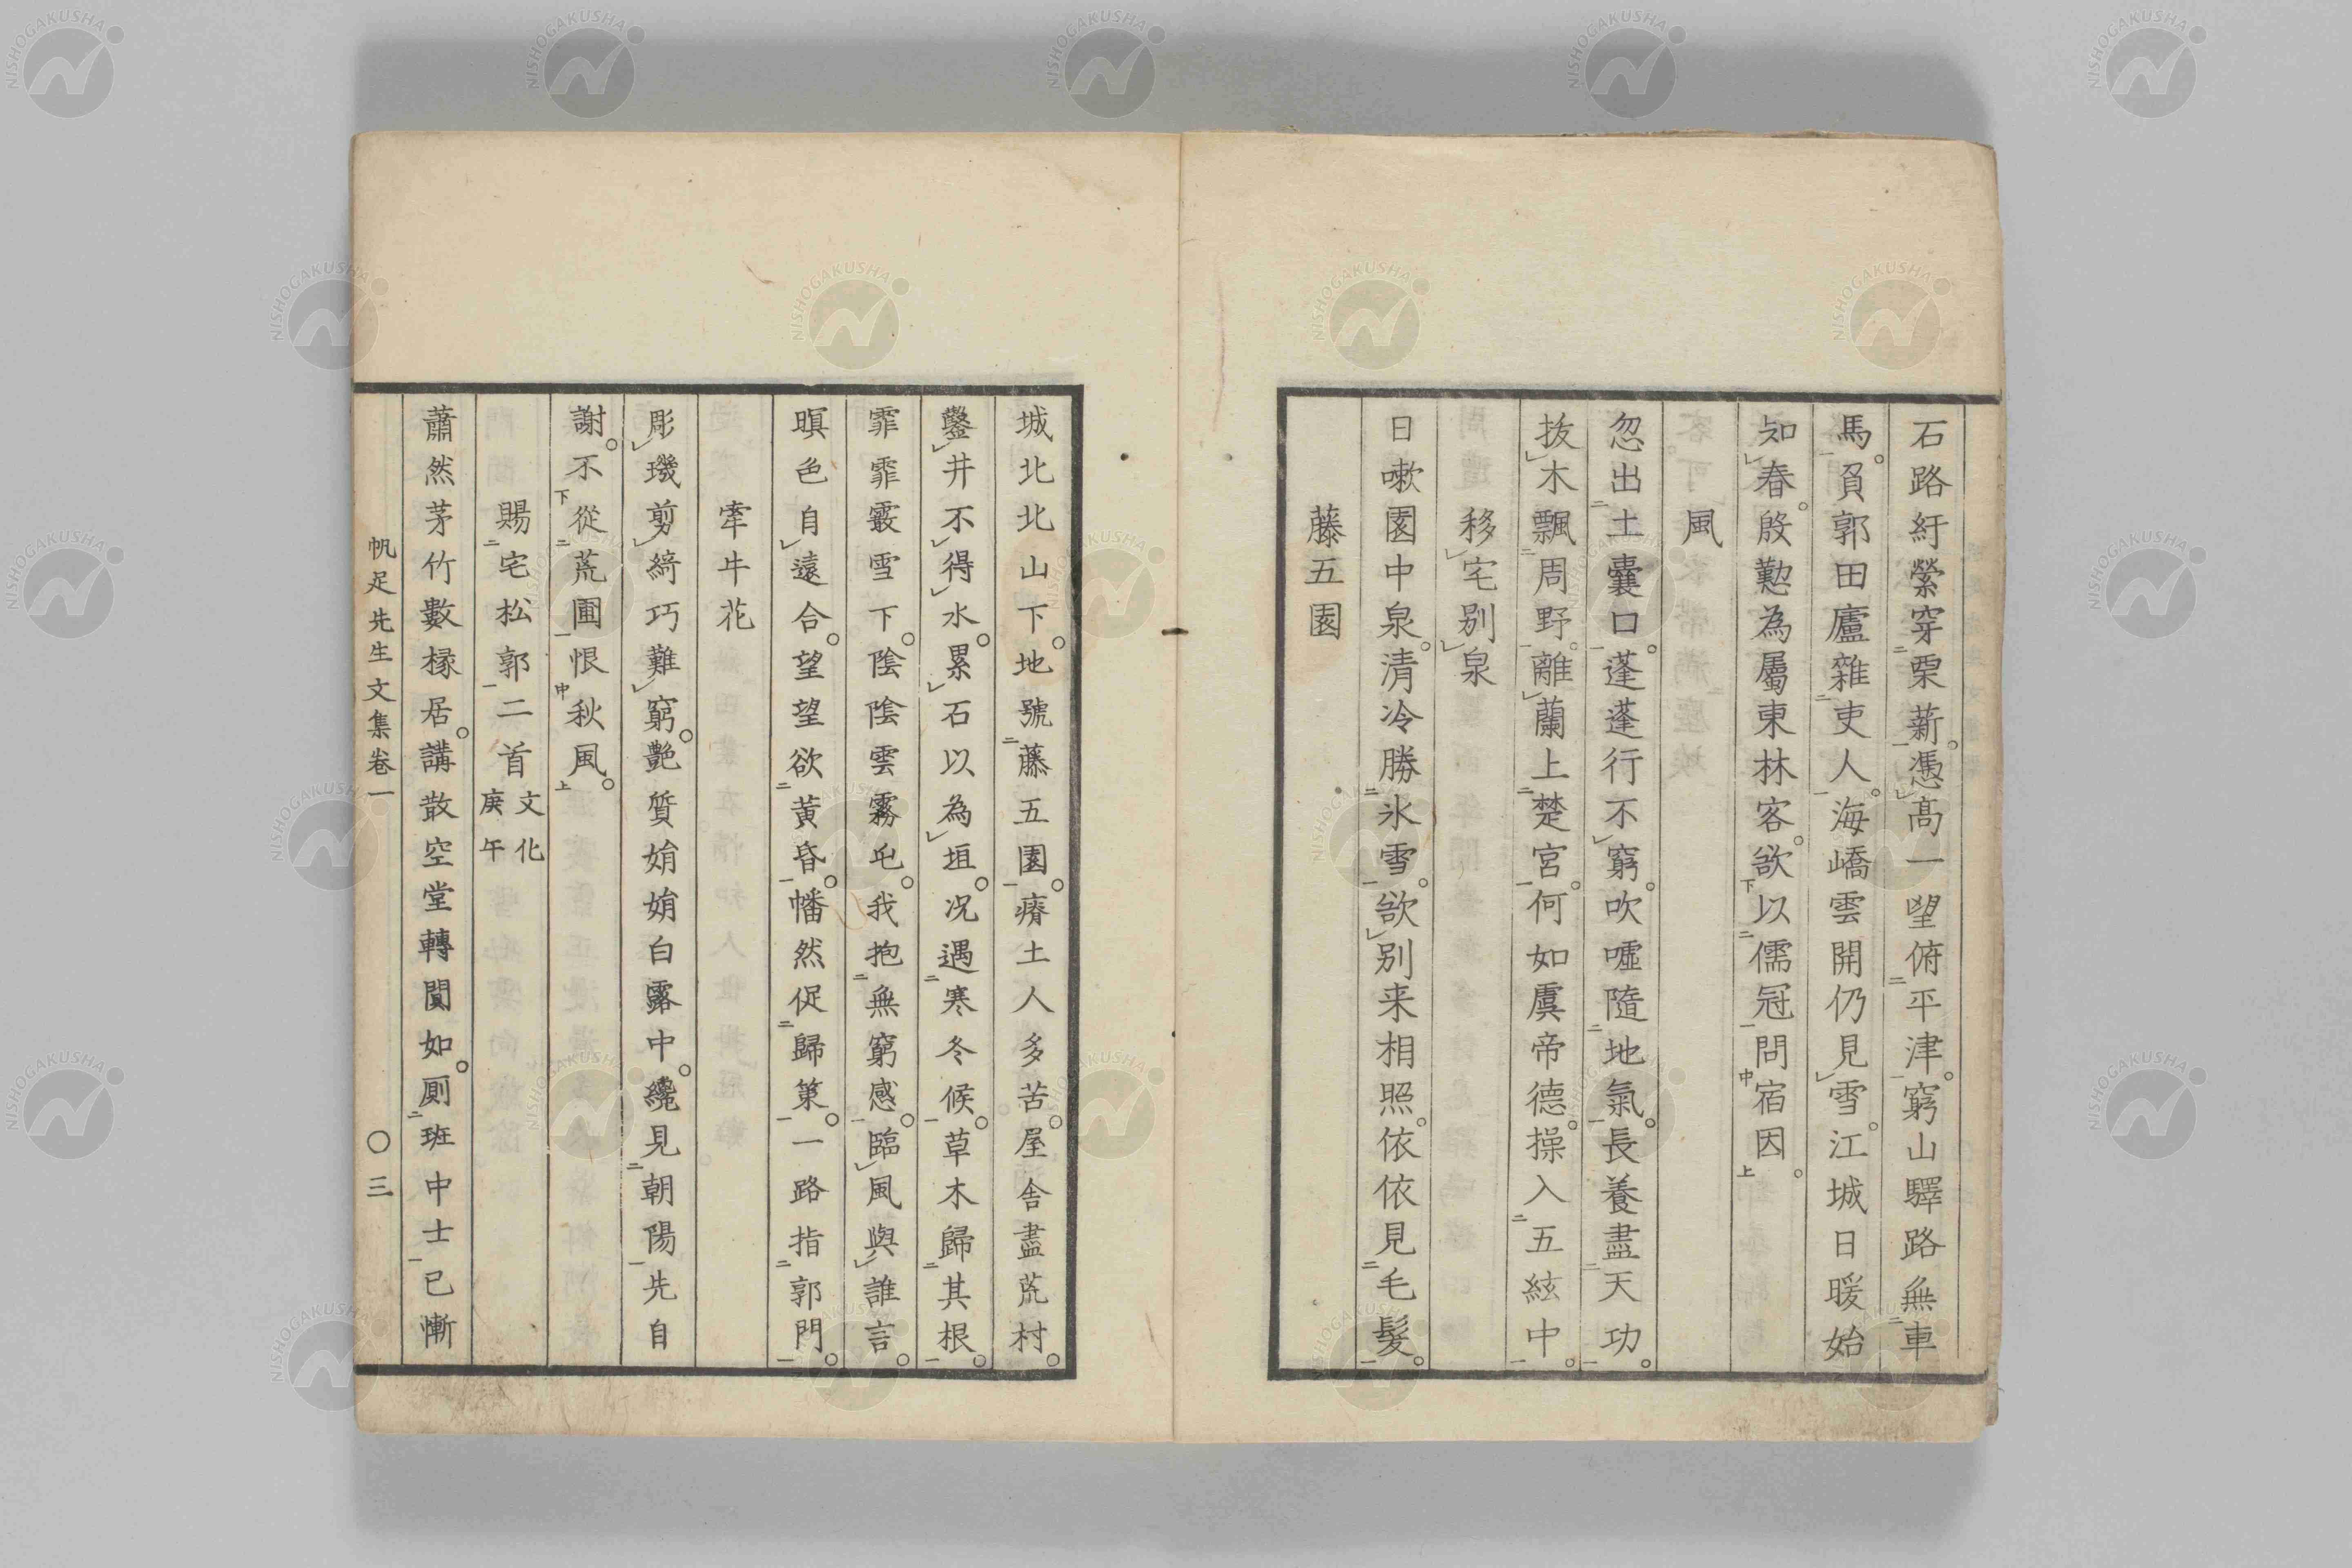 石路紆縈穿栗薪。憑高一望俯平津。窮山驛路無車
馬。負郭田廬雜吏人。海嶠雲開仍見雪。江城日暖始
知春。殷懃為屬東林客。欲以儒冠問宿因。
風
忽出土囊口。蓬蓬行不窮。吹噓隨地氣。長養盡天功。
抜木飄周野。離蘭上楚宮。何如虞帝德。操入五絃中。
移宅別泉
日嗽園中泉。清冷勝氷雪。欲別来相照。依依見毛髮。
藤五園
城北北山下。地號藤五園。瘠土人多苦。屋舎盡荒村。
鑿井不得水。累石以為垣。况遇寒冬候。草木歸其根。
霏霏霰雪下。陰陰雲霧屯。我抱無窮感。臨風與誰言。
暝色自遠合。望望欲黃昏。幡然促歸策。一路指郭門。
牽牛花
彫璣剪綺巧難窮。艶質娟娟白露中。纔見朝陽先自
謝。不從荒圃恨秋風。
賜宅松郭二首 文化庚午
蕭然茅竹數椽居。講散空堂轉闃如。厠班中士已慚
帆足先生文集卷一 〇三
NISHOGAKUSHA